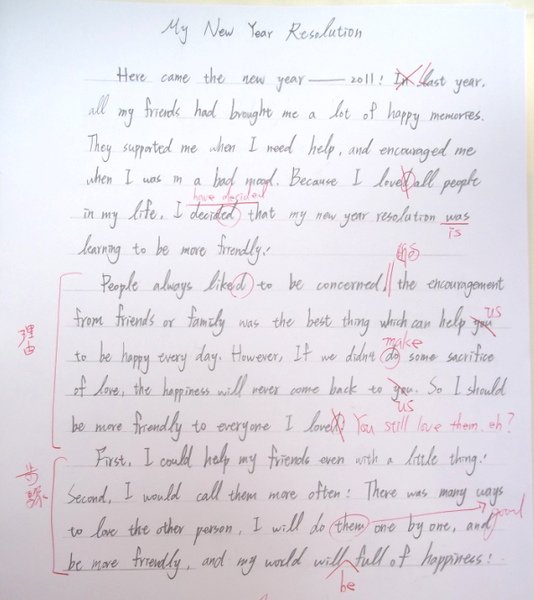 My New Year Resolution
Here came the new year — 2011! In last year,
all my friends had brought me a lot of happy memories.
They supported me when I need help, and encouraged me
when I was in a bad mood. Because I loved all people
have decided
in my life, I decided that my new year resolution was
is
learning to be more friendly!
People always liked to be concerned, the encouragement
from friends or family was the best thing which can help you
us
理由
make
to be happy every day. However, If we didn't do some sacrifice
of love, the happiness will never come back to you. So I should
us
be more friendly to everyone I loved! You still love them, eh?
First, I could help my friends even with a little thing!
步驟
Second, I would call them more often! There was many ways
to love the other person, I will do them one by one, and
good
be more friendly, and my world will full of happiness!
be